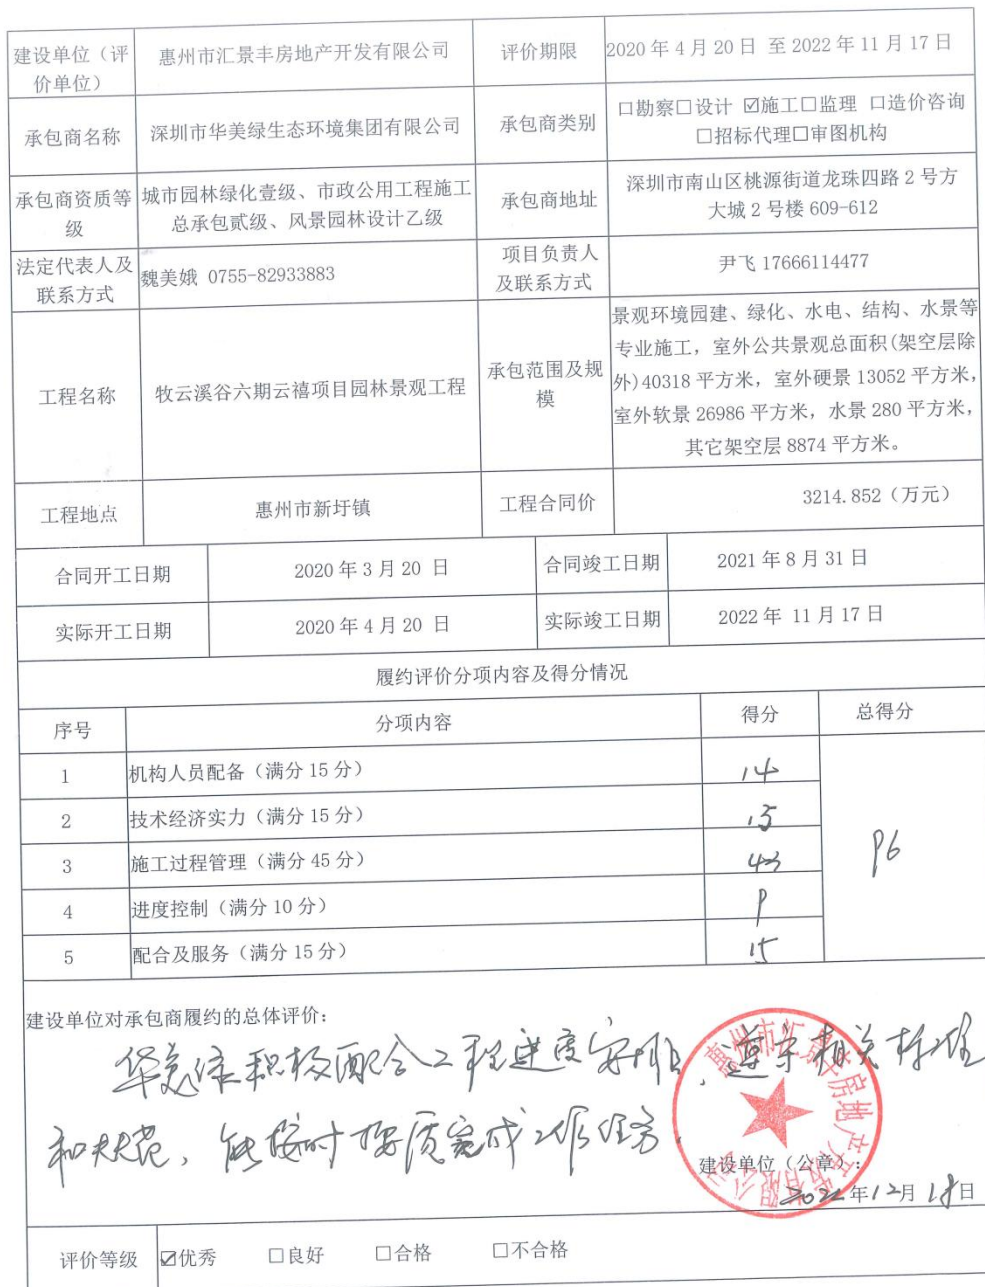 建设单位（评价单位） 惠州市汇景丰房地产开发有限公司 评价期限 2020 年 4 月 20 日 至 2022 年 11 月 17 日
承包商名称 深圳市华美绿生态环境集团有限公司 承包商类别 口勘察□设计 ☑施工□监理 口造价咨询
□招标代理□审图机构
承包商资质等级 城市园林绿化壹级、市政公用工程施工
总承包贰级、风景园林设计乙级
承包商地址 深圳市南山区桃源街道龙珠四路 2 号方
大城 2 号楼 609-612
法定代表人及
联系方式
魏美娥 0755-82933883
项目负责人
及联系方式
尹飞 17666114477
工程名称 牧云溪谷六期云禧项目园林景观工程
承包范围及规
模
景观环境园建、绿化、水电、结构、水景等
专业施工，室外公共景观总面积(架空层除
外)40318 平方米，室外硬景 13052 平方米，
室外软景 26986 平方米，水景 280 平方米，
其它架空层 8874 平方米。
工程地点 惠州市新圩镇 工程合同价 3214.852（万元）
合同开工日期 2020 年 3 月 20 日 合同竣工日期 2021 年 8 月 31 日
实际开工日期 2020 年 4 月 20 日 实际竣工日期 2022 年 11 月 17 日
履约评价分项内容及得分情况
序号 分项内容 得分 总得分
1 机构人员配备（满分 15 分） 14
2 技术经济实力（满分 15 分） 15
3 施工过程管理（满分 45 分） 43
4 进度控制（满分 10 分） 9
5 配合及服务（满分 15 分） 15
96
建设单位对承包商履约的总体评价：
华美绿积极配合工程进度安排，遵守相关标准
和规范，能按时按质完成工作任务。
惠州市汇景丰房地产开发有限公司
建设单位（公章）：
2022年12月18日
评价等级 ☑优秀 □良好 □合格 □不合格